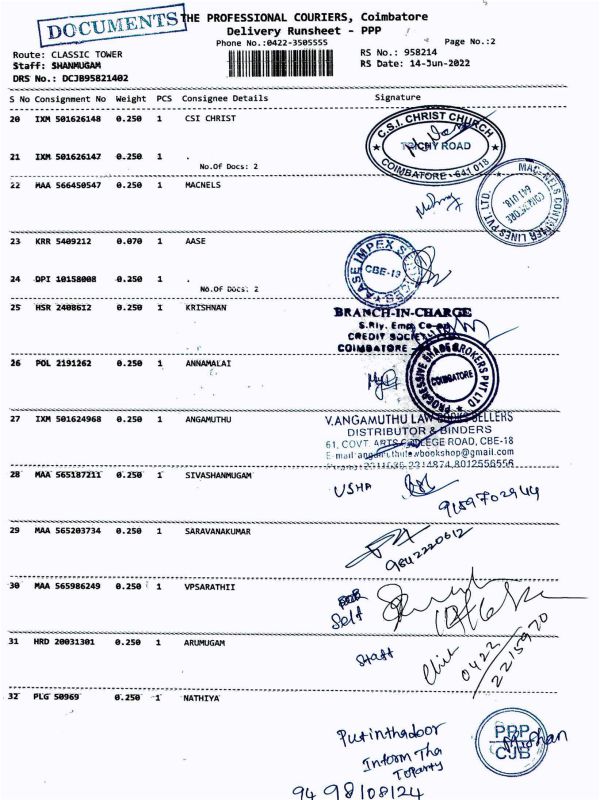 DOCUMENTS
THE PROFESSIONAL COURIERS, Coimbatore
Delivery Runsheet - PPP
Phone No.:0422-3505555
Page No.:2
Route: CLASSIC TOWER
RS No.: 958214
Staff: SHANMUGAM
RS Date: 14-Jun-2022
DRS No.: DCJB95821402
S No Consignment No Weight PCS Consignee Details Signature
20 IXM 501626148 0.250 1 CSI CHRIST
C.S.I. CHRIST CHURCH
TRICHY ROAD
COIMBATORE - 641 018
21 IXM 501626147 0.250 1 .
No.Of Docs: 2
22 MAA 566450547 0.250 1 MACNELS
MAC-NELS CONTAINER LINES PVT. LTD.
COIMBATORE
641 018.
23 KRR 5409212 0.070 1 AASE
AASE IMPEX SERVICES
CBE-18
24 DPI 10158008 0.250 1 .
No.Of Docs: 2
25 HSR 2408612 0.250 1 KRISHNAN
BRANCH-IN-CHARGE
S.Rly. Emp. Co-op
CREDIT SOCIETY
COIMBATORE
26 POL 2191262 0.250 1 ANNAMALAI
PROGRESSIVE SHARE BROKERS PVT LTD
COIMBATORE
27 IXM 501624968 0.250 1 ANGAMUTHU
V.ANGAMUTHU LAW BOOKS SELLERS
DISTRIBUTOR & BINDERS
61, COVT. ARTS COLLEGE ROAD, CBE-18
E-mail angamuthulawbookshop@gmail.com
2314874,8012556556
28 MAA 565187211 0.250 1 SIVASHANMUGAM
USHA
9159702944
29 MAA 565203734 0.250 1 SARAVANAKUMAR
9842220612
30 MAA 565986249 0.250 1 VPSARATHII
Self
31 HRD 20031301 0.250 1 ARUMUGAM
Staff
0422
2215970
32 PLG 50969 0.250 1 NATHIYA
Putinthadoor
Inform Tha
Toparty
94 98108124
PPP
CJB